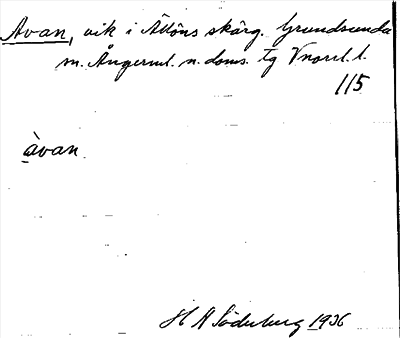 Avan, vik i Ällöns skärg. Grundsunda
m. Ångerml. n. doms. tg Vnorrl. l.
115
àvan.
H A Söderberg 1936